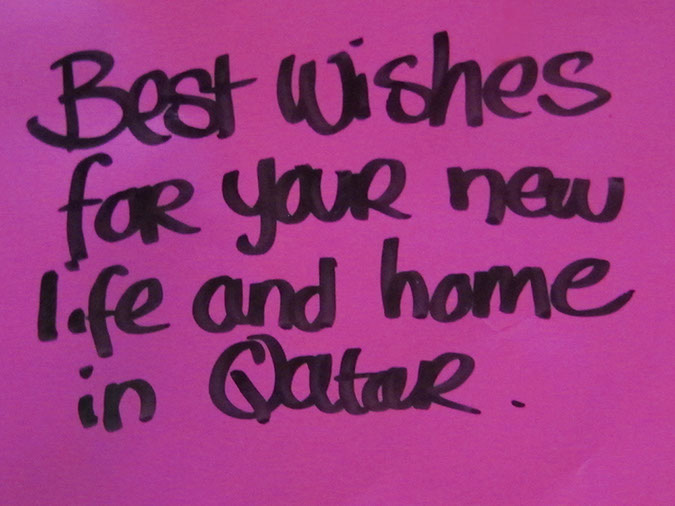 Best wishes
for your new
life and home
in Qatar.